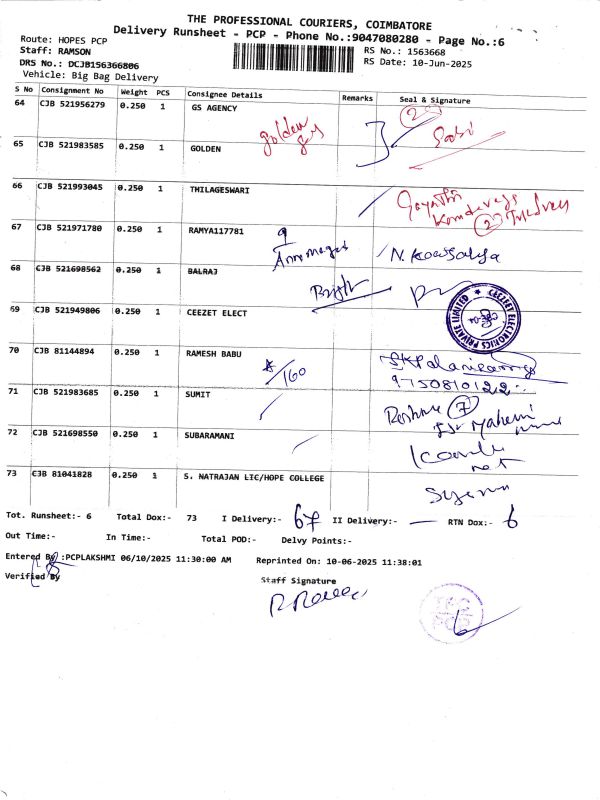 THE PROFESSIONAL COURIERS, COIMBATORE
Delivery Runsheet - PCP - Phone No.:9047080280 - Page No.:6
Route: HOPES PCP
RS No.: 1563668
Staff: RAMSON
RS Date: 10-Jun-2025
DRS No.: DCJB156366806
Vehicle: Big Bag Delivery
S No Consignment No Weight PCS Consignee Details Remarks Seal & Signature
64 CJB 521956279 0.250 1 GS AGENCY
golden
65 CJB 521983585 0.250 1 GOLDEN
66 CJB 521993045 0.250 1 THILAGESWARI
Gayathri
2
67 CJB 521971780 0.250 1 RAMYA117781
N. Kowsalya
68 CJB 521698562 0.250 1 BALRAJ
69 CJB 521949806 0.250 1 CEEZET ELECT
CEEZET ELECTRONICS PRIVATE LIMITED
70 CJB 81144894 0.250 1 RAMESH BABU
160
9750810122
71 CJB 521983685 0.250 1 SUMIT
7
72 CJB 521698550 0.250 1 SUBARAMANI
73 CJB 81041828 0.250 1 S. NATRAJAN LIC/HOPE COLLEGE
Tot. Runsheet:- 6 Total Dox:- 73 I Delivery:- 67 II Delivery:- — RTN Dox:- 6
Out Time:- In Time:- Total POD:- Delvy Points:-
Entered By :PCPLAKSHMI 06/10/2025 11:30:00 AM Reprinted On: 10-06-2025 11:38:01
Verified By
Staff Signature
PCP